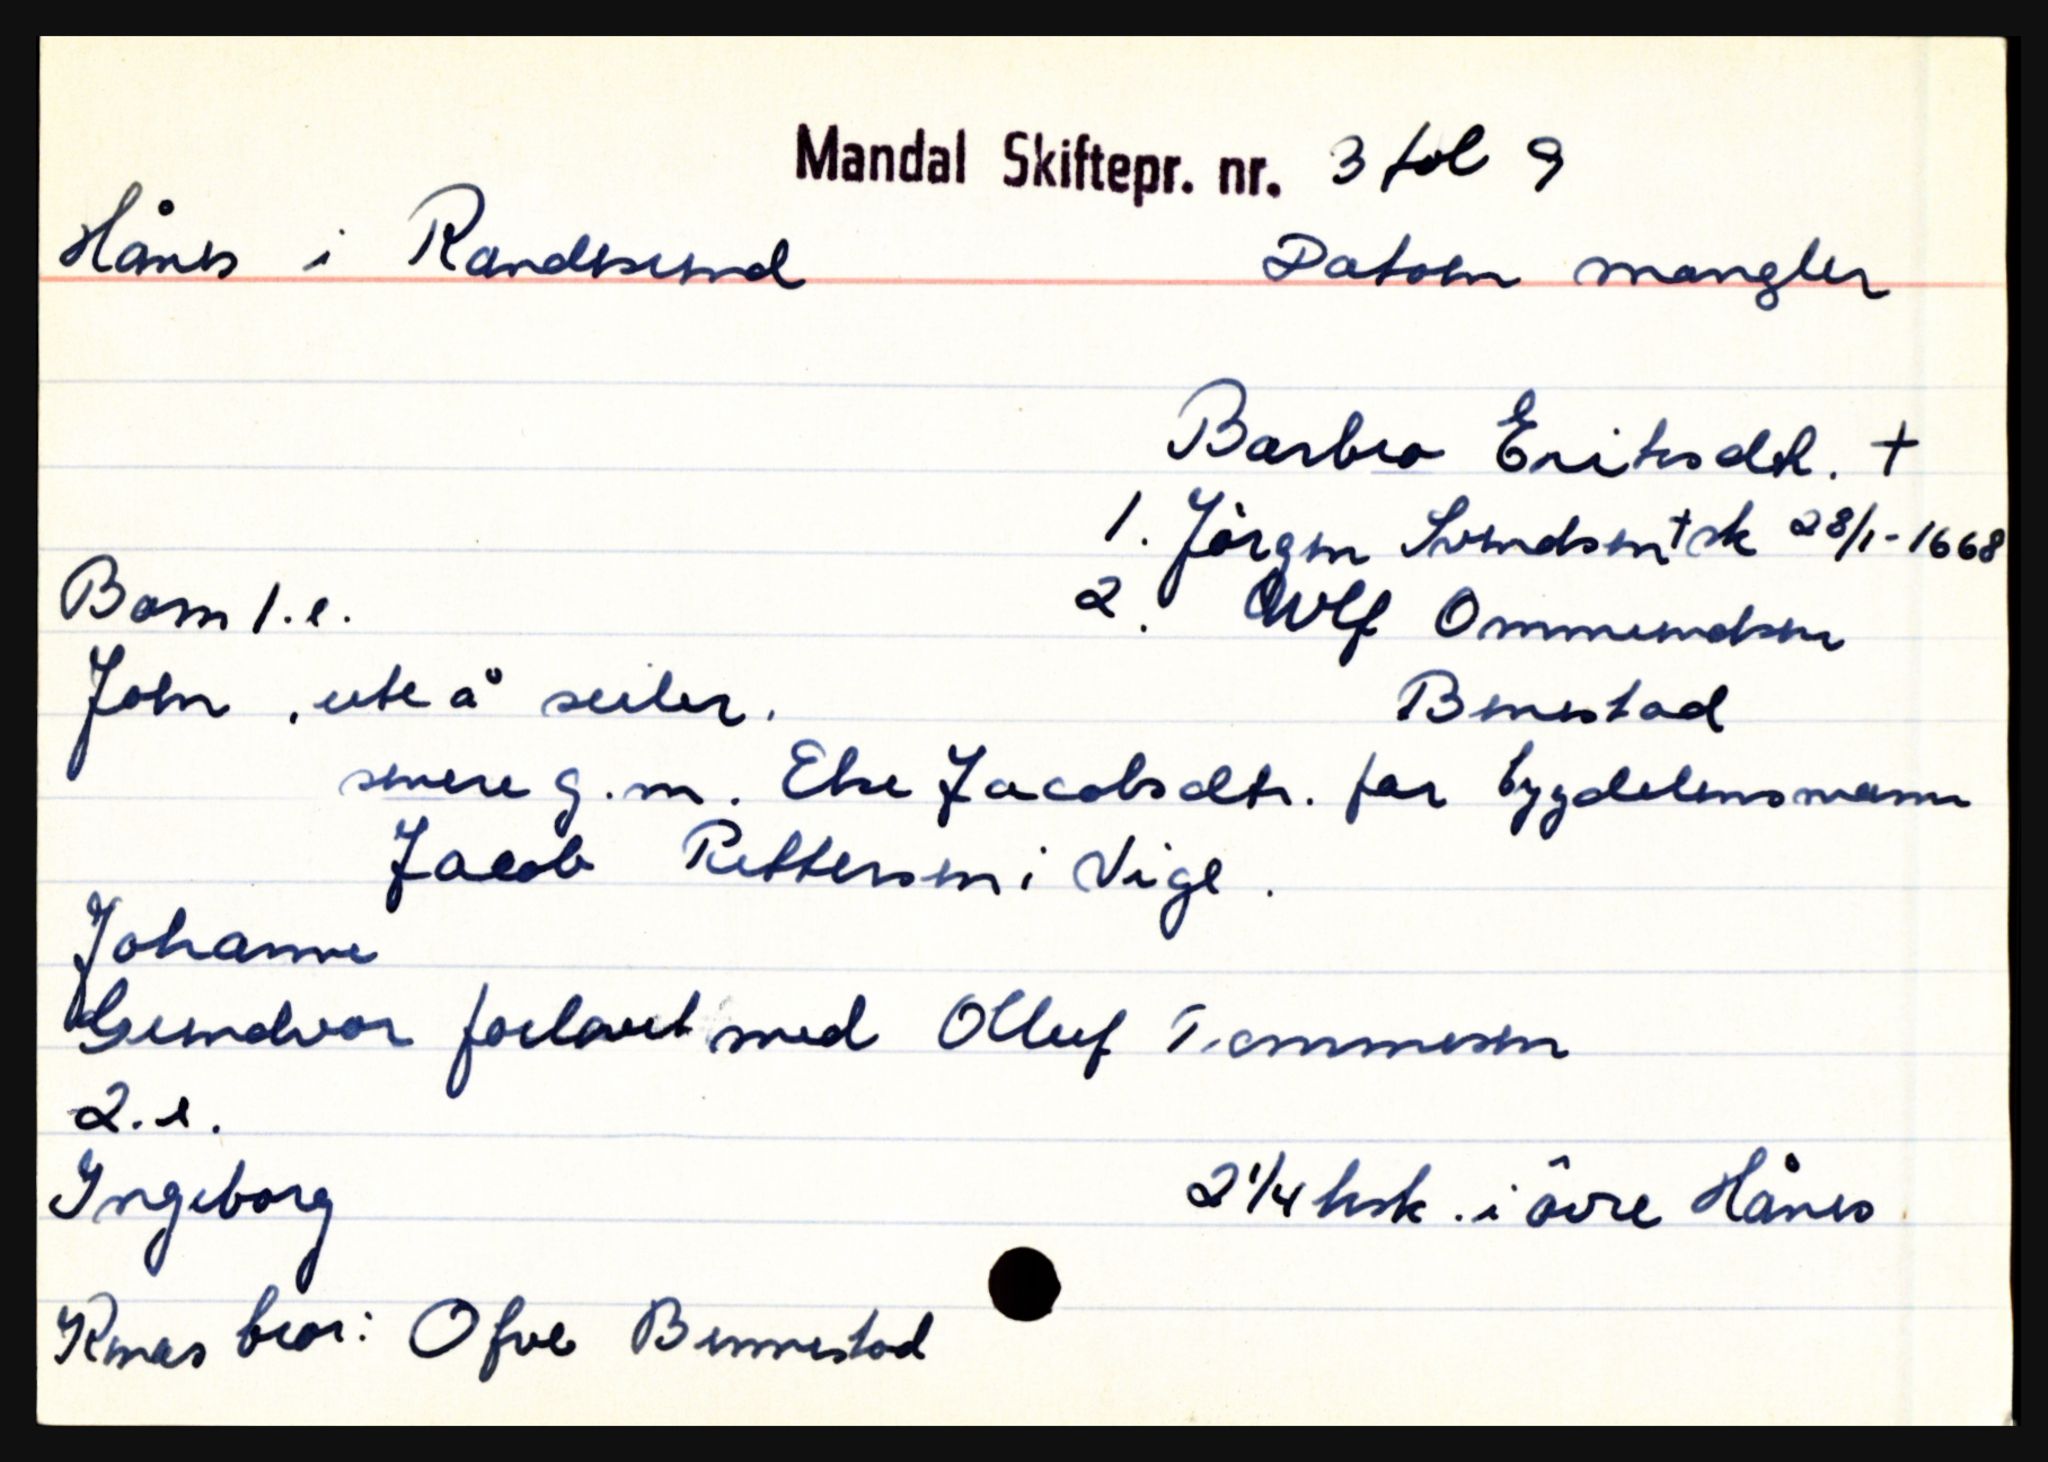 Mandal Skiftepr. nr. 3 fol 9
Hånes i Randesund Datoen mangler
Barbro Eriksdtr. †
1. Jörgen Svendsen † sk 28/1-1668
Barn 1.e.
2. Ommundsen
John, ute å seiler.
Benestad
senere g.m. Else Jacobsdtr. far bygdelensmann
Jacob Pettersen i Vige.
Johanne
Gundvor forlovet med Olluf Tommesen
2.e.
Ingeborg
2 1/4 hsk. i övre Hånes
Knas bror: Ofve Bennestad